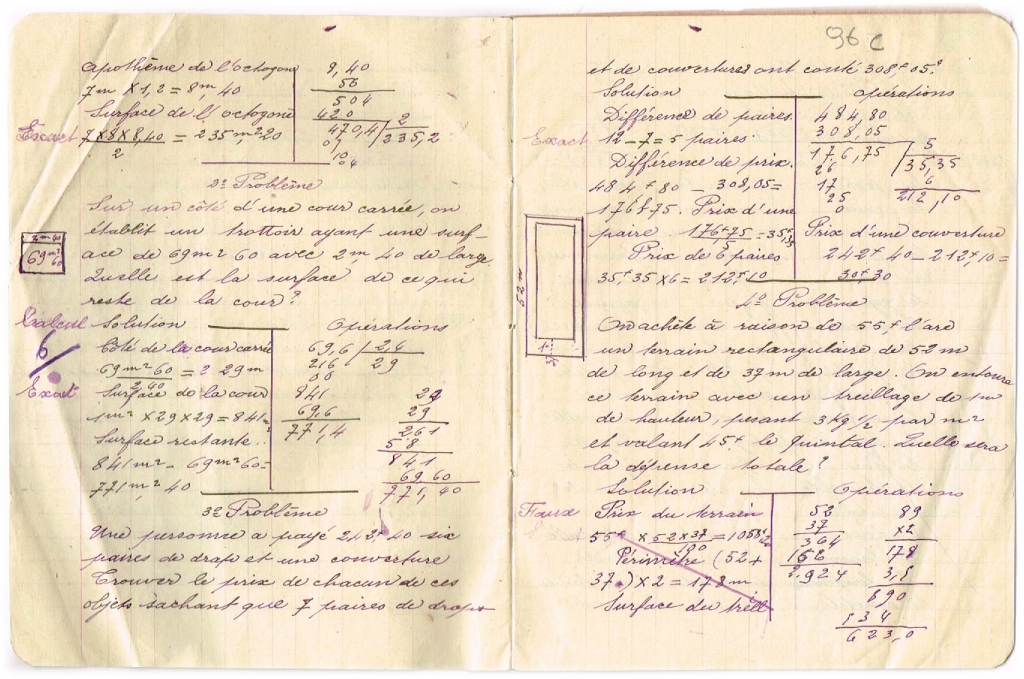 Apothème de l'octogone
7m × 1,2 = 8m,40
Surface de l'octogone
Exact 7×8×8,40 = 235m²20
2
8,40
56
504
420
470,4 | 2
07 235,2
10
04
2e Problème
Sur un côté d'une cour carrée, on
établit un trottoir ayant une surf-
ace de 69m²60 avec 2m,40 de large
Quelle est la surface de ce qui
reste de la cour?
2m40
69m²
60
Calcul
6/
Exact
Solution
Côté de la cour carrée
69m²60 = 29m
2,40
Surface de la cour
1m² × 29 × 29 = 841m²
Surface restante..
841m² - 69m²60=
771m²40
Opérations
69,6 | 2,4
216 29
00
841
69,6
771,4
29
29
261
58
841
69,60
771,40
3e Problème
Une personne a payé 242f40 six
paires de draps et une couverture
Trouver le prix de chacun de ces
objets sachant que 7 paires de draps
96 c
et de couvertures ont coûté 308f05?
Solution
Exact
Différence de paires.
12-7=5 paires.
Différence de prix.
484f80 - 308,05=
176f75. Prix d'une
paire. 176f75 = 35f,35
5
Prix de 6 paires
35f,35 × 6 = 212f,10
opérations
484,80
308,05
176,75 | 5
26 35,35
17 6
25 212,10
0
Prix d'une couverture
242f40-212f,10=
30f30
52m
4e Problème
On achète à raison de 55f l'are
un terrain rectangulaire de 52m
de long et de 37m de large. On entoure
ce terrain avec un treillage de 1m
de hauteur, pesant 3Kg ½ par m²
et valant 45f. le quintal. Quelle sera
la dépense totale?
Solution
Faux
Prix du terrain
55f × 52×37 = 1058f
Périmètre (52+
37.)×2 = 178m
Surface du treill
Opérations
52
37
364
156
1.924
89
×2
178
3,5
890
534
623,0